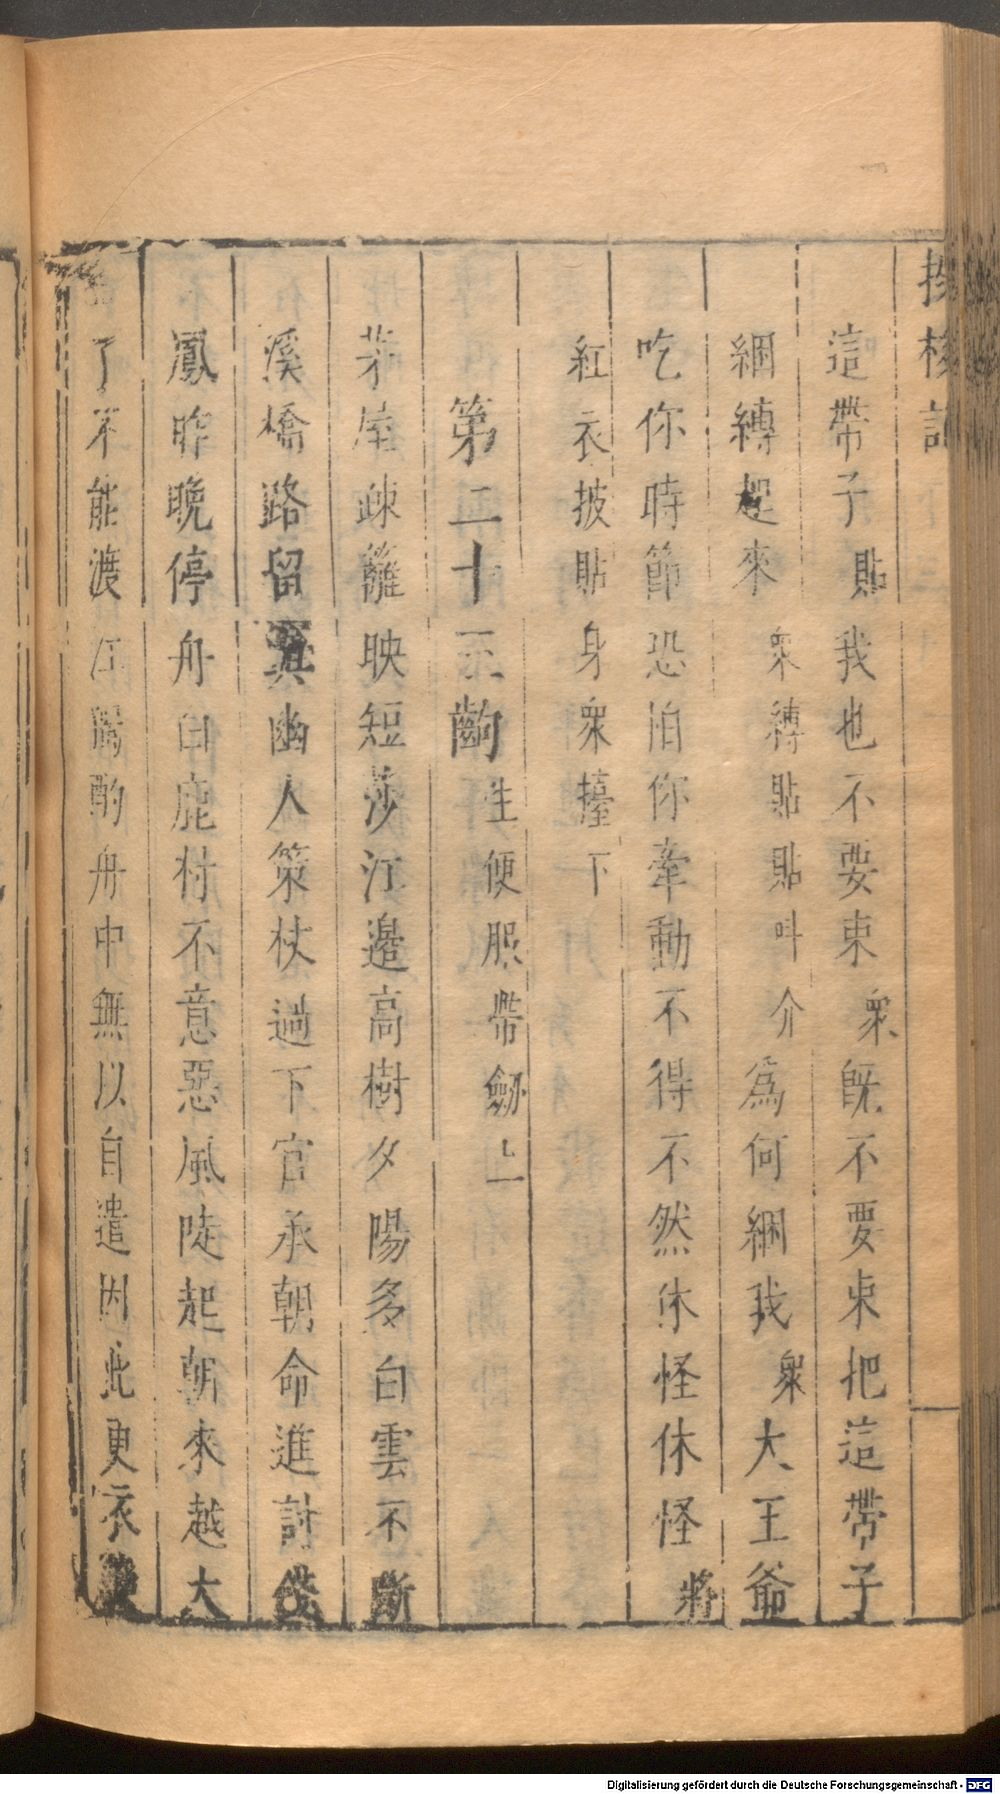 投梭記
這帶子貼我也不要束衆既不要束把這帶子
綑縛起來衆縛貼貼叫介爲何綑我衆大王爺
吃你時節恐怕你牽動不得不然休怪休怪將
紅衣披貼身衆擡下
第二十齣生便服帶劒上
茅屋疎籬映短莎江邉高樹夕陽多白雲不斷
溪橋路留與幽人策杖過下官承朝命進討
鳳昨晚停舟白鹿村不意惡風陡起朝來越大
了不能渡江酌舟中無以自遣因此更衣
Digitalisierung gefördert durch die Deutsche Forschungsgemeinschaft - DFG